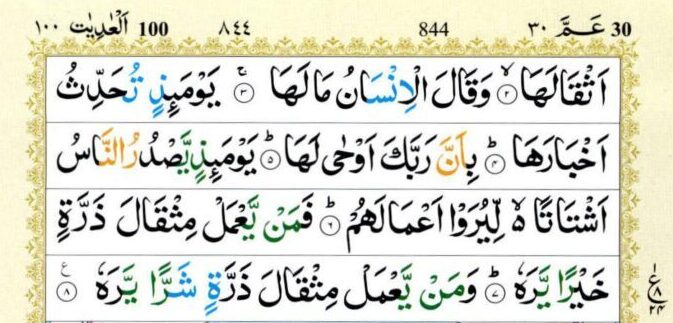 30 عَمَّ ٣٠ 844 ٨٤٤ 100 اَلْعٰدِيٰت ١٠٠
اَثْقَالَهَا ۙ‏﴿۲﴾ وَقَالَ الْاِنْسَانُ مَا لَهَا ۚ‏﴿۳﴾ يَوْمَئِذٍ تُحَدِّثُ
اَخْبَارَهَا ؕ‏﴿۴﴾ بِاَنَّ رَبَّكَ اَوْحٰى لَهَا ؕ‏﴿۵﴾ يَوْمَئِذٍ يَّصْدُرُ النَّاسُ
اَشْتَاتًا ۙ۬ لِّيُرَوْا اَعْمَالَهُمْ ؕ‏﴿۶﴾ فَمَنْ يَّعْمَلْ مِثْقَالَ ذَرَّةٍ
خَيْرًا يَّرَهٗ ؕ‏﴿۷﴾ وَمَنْ يَّعْمَلْ مِثْقَالَ ذَرَّةٍ شَرًّا يَّرَهٗ ‏﴿۸﴾
ع ٨ ٢٤